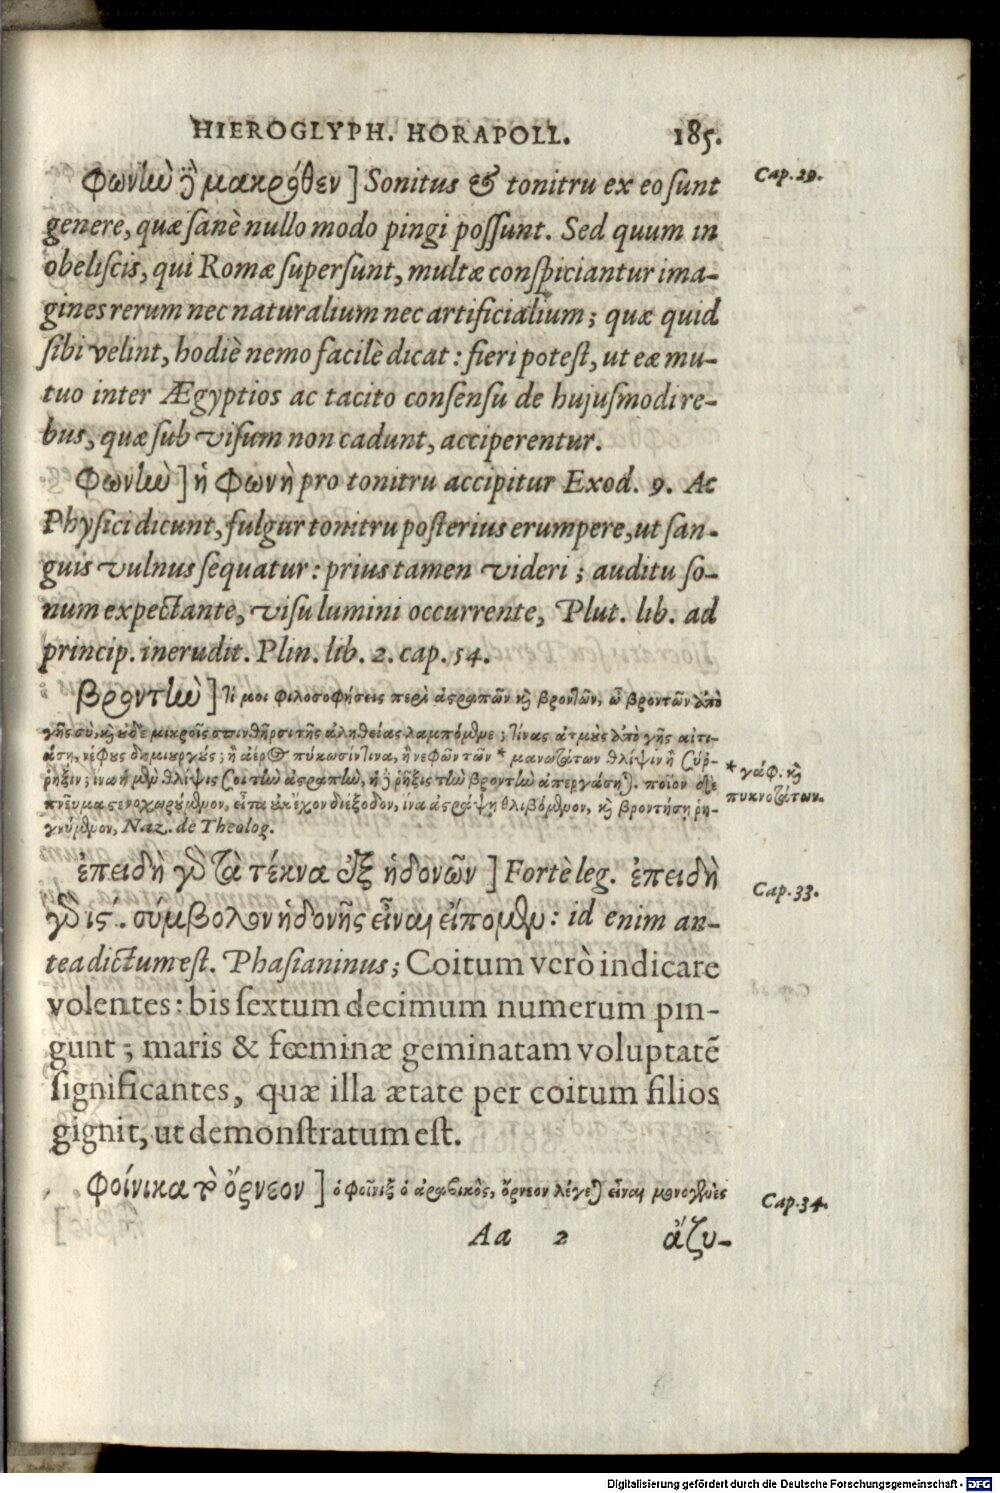 HIEROGLYPH. HORAPOLL. 185.
Φωνὴν ἢ μακρόθεν] Sonitus & tonitru ex eo sunt
Cap. 29.
genere, quæ sanè nullo modo pingi possunt. Sed quum in
obeliscis, qui Romæ supersunt, multæ conspiciantur ima-
gines rerum nec naturalium nec artificialium; quæ quid
sibi velint, hodiè nemo facilè dicat: fieri potest, ut eæ mu-
tuo inter Ægyptios ac tacito consensu de hujusmodi re-
bus, quæ sub visum non cadunt, acciperentur.
Φωνὴν] ἡ Φωνὴ pro tonitru accipitur Exod. 9. Ac
Physici dicunt, fulgur tonitru posterius erumpere, ut san-
guis vulnus sequatur: prius tamen videri; auditu so-
num expectante, visu lumini occurrente, Plut. lib. ad
princip. inerudit. Plin. lib. 2. cap. 54.
βροντὴν] τί μοι φιλοσοφήσεις περὶ ἀςραπῶν καὶ βροντῶν, ὦ βροντῶν ἀπὸ
γῆς σὺ, καὶ οὐδὲ μικροῖς σπινθῆρσι τῆς ἀληθείας λαμπόμενε; τίνας ἀτμοὺς ἀπὸ γῆς αἰτι-
άσῃ, νέφους δημιουργούς; ἢ ἀέρος πύκνωσίν τινα, ἢ νεφῶν τῶν * μανωτάτων θλίψιν ἢ σύρ-
ῥηξιν; ἵνα ἡ μὲν θλίψις σοι τὴν ἀςραπὴν, ἡ δὲ ῥῆξις τὴν βροντὴν ἀπεργάσηται. ποῖον δὲ
* γράφ. καὶ
πυκνοτάτων.
πνεῦμα ςενοχωρούμενον, εἶτα οὐκ ἔχον διέξοδον, ἵνα ἀςράψῃ θλιβόμενον, καὶ βροντήσῃ ῥη-
γνύμενον, Naz. de Theolog.
ἐπειδὴ γὰρ τὰ τέκνα ἐξ ἡδονῶν] Fortè leg. ἐπειδὴ
Cap. 33.
γὰρ ις΄. σύμβολον ἡδονῆς εἶναι εἴπομεν: id enim an-
tea dictum est. Phasianinus; Coitum verò indicare
volentes: bis sextum decimum numerum pin-
gunt; maris & fœminæ geminatam voluptatē
significantes, quæ illa ætate per coitum filios
gignit, ut demonstratum est.
Φοίνικα τὸ ὄρνεον] ὁ φοῖνιξ ὁ ἀραβικὸς, ὄρνεον λέγεται εἶναι μονογενὲς
Cap. 34.
Aa 2 ἀζυ-
Digitalisierung gefördert durch die Deutsche Forschungsgemeinschaft - DFG